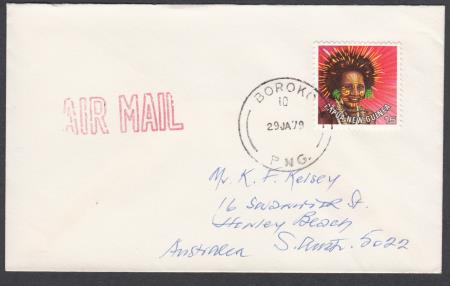 AIR MAIL
BOROKO
10
29JA79
P.N.G.
PAPUA NEW GUINEA
Mr. K. F. Kelsey
16 St.
Henley Beach
Australia S. Austr. 5022